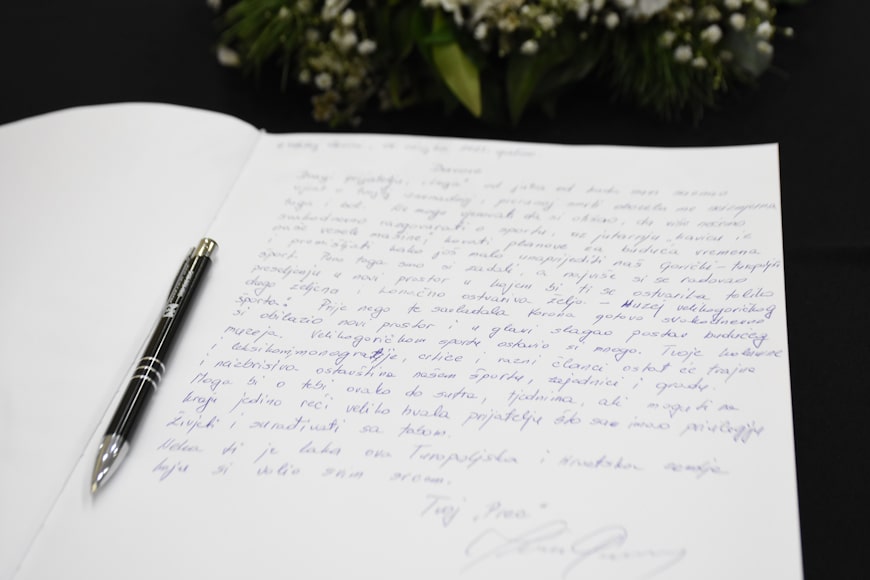 Dragi prijatelju,
tuga i bol. Ne mogu vjerovati da si otišao, da više nećemo
svakodnevno razgovarati o sportu, uz jutarnju „kavicu iz
naše vesele mašine", kovati planove za buduća vremena
i promišljati kako još malo unaprijediti naš Gorički – turopoljski
sport. Puno toga smo si zadali, a najviše si se radovao
preseljenju u novi prostor u kojem bi ti se ostvarila toliko
dugo željena i konačno ostvariva želja – Muzej velikogoričkog
sporta." Prije nego te savladala korona gotovo svakodnevno
si obilazio novi prostor i u glavi slagao postav budućeg
muzeja. Velikogoričkom sportu ostavio si mnogo. Tvoje
leksikoni, monografije, crtice i razni članci ostat će trajna
i neizbrisiva ostavština našem športu, zajednici i gradu.
Moga bi o tebi ovako do sutra, tjednima, ali mogu ti na
kraju jedino reći veliko hvala prijatelju što sam imao privilegiju
živjeti i surađivati sa tobom.
Neka ti je laka ova Turopoljska i Hrvatska zemlja
koju si volio svim srcem.
Tvoj